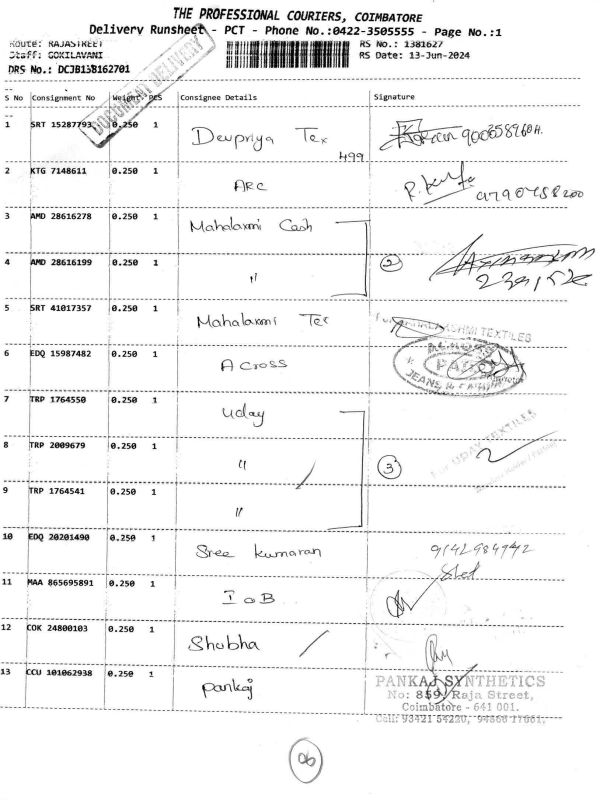 THE PROFESSIONAL COURIERS, COIMBATORE
Delivery Runsheet - PCT - Phone No.:0422-3505555 - Page No.:1
Route: RAJASTREET
RS No.: 1381627
Staff: GOKILAVANI
RS Date: 13-Jun-2024
DRS No.: DCJB138162701
DOCUMENT DELIVERY
S No Consignment No Weight PCS Consignee Details Signature
1 SRT 15287793 0.250 1 Devpriya Tex
499
2 KTG 7148611 0.250 1 ARC
3 AMD 28616278 0.250 1 Mahalaxmi Cash
4 AMD 28616199 0.250 1 " 2
5 SRT 41017357 0.250 1 Mahalaxmi Tex
6 EDQ 15987482 0.250 1 Across
JEANS
7 TRP 1764550 0.250 1 Uday
8 TRP 2009679 0.250 1 " 3
For UDAY TEXTILES
9 TRP 1764541 0.250 1 "
10 EDQ 20201490 0.250 1 Sree kumaran
11 MAA 865695891 0.250 1 IOB
12 COK 24800103 0.250 1 Shobha
13 CCU 101062938 0.250 1 Pankaj
PANKAJ SYNTHETICS
No: 859, Raja Street,
Coimbatore - 641 001.
Cell: 93421 54220,
06